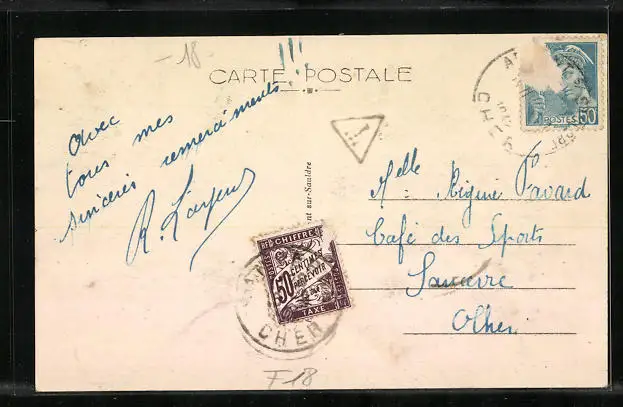 -18
CARTE POSTALE
!!!
avec
tous mes
sincères remerciements
R.
T
POSTES 50
CHER
Melle Régine Pavard
Café des Sports
Sancerre
Cher
CHIFFRE
50 CENTIMES
À PERCEVOIR
TAXE
CHER
nt-sur-Sauldre
F18